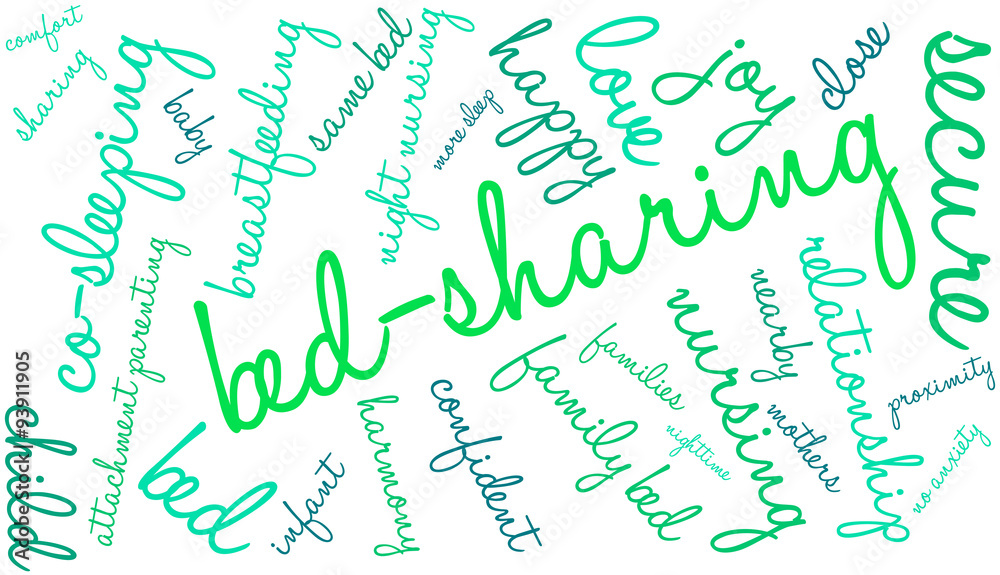 comfort
sharing
co-sleeping
baby
breastfeeding
same bed
night nursing
more sleep
happy
love
joy
close
secure
bed-sharing
attachment parenting
child
bed
infant
harmony
confident
family bed
families
nursing
nighttime
nearby
mothers
relationship
proximity
no anxiety
Adobe Stock | #93911905
Adobe Stock